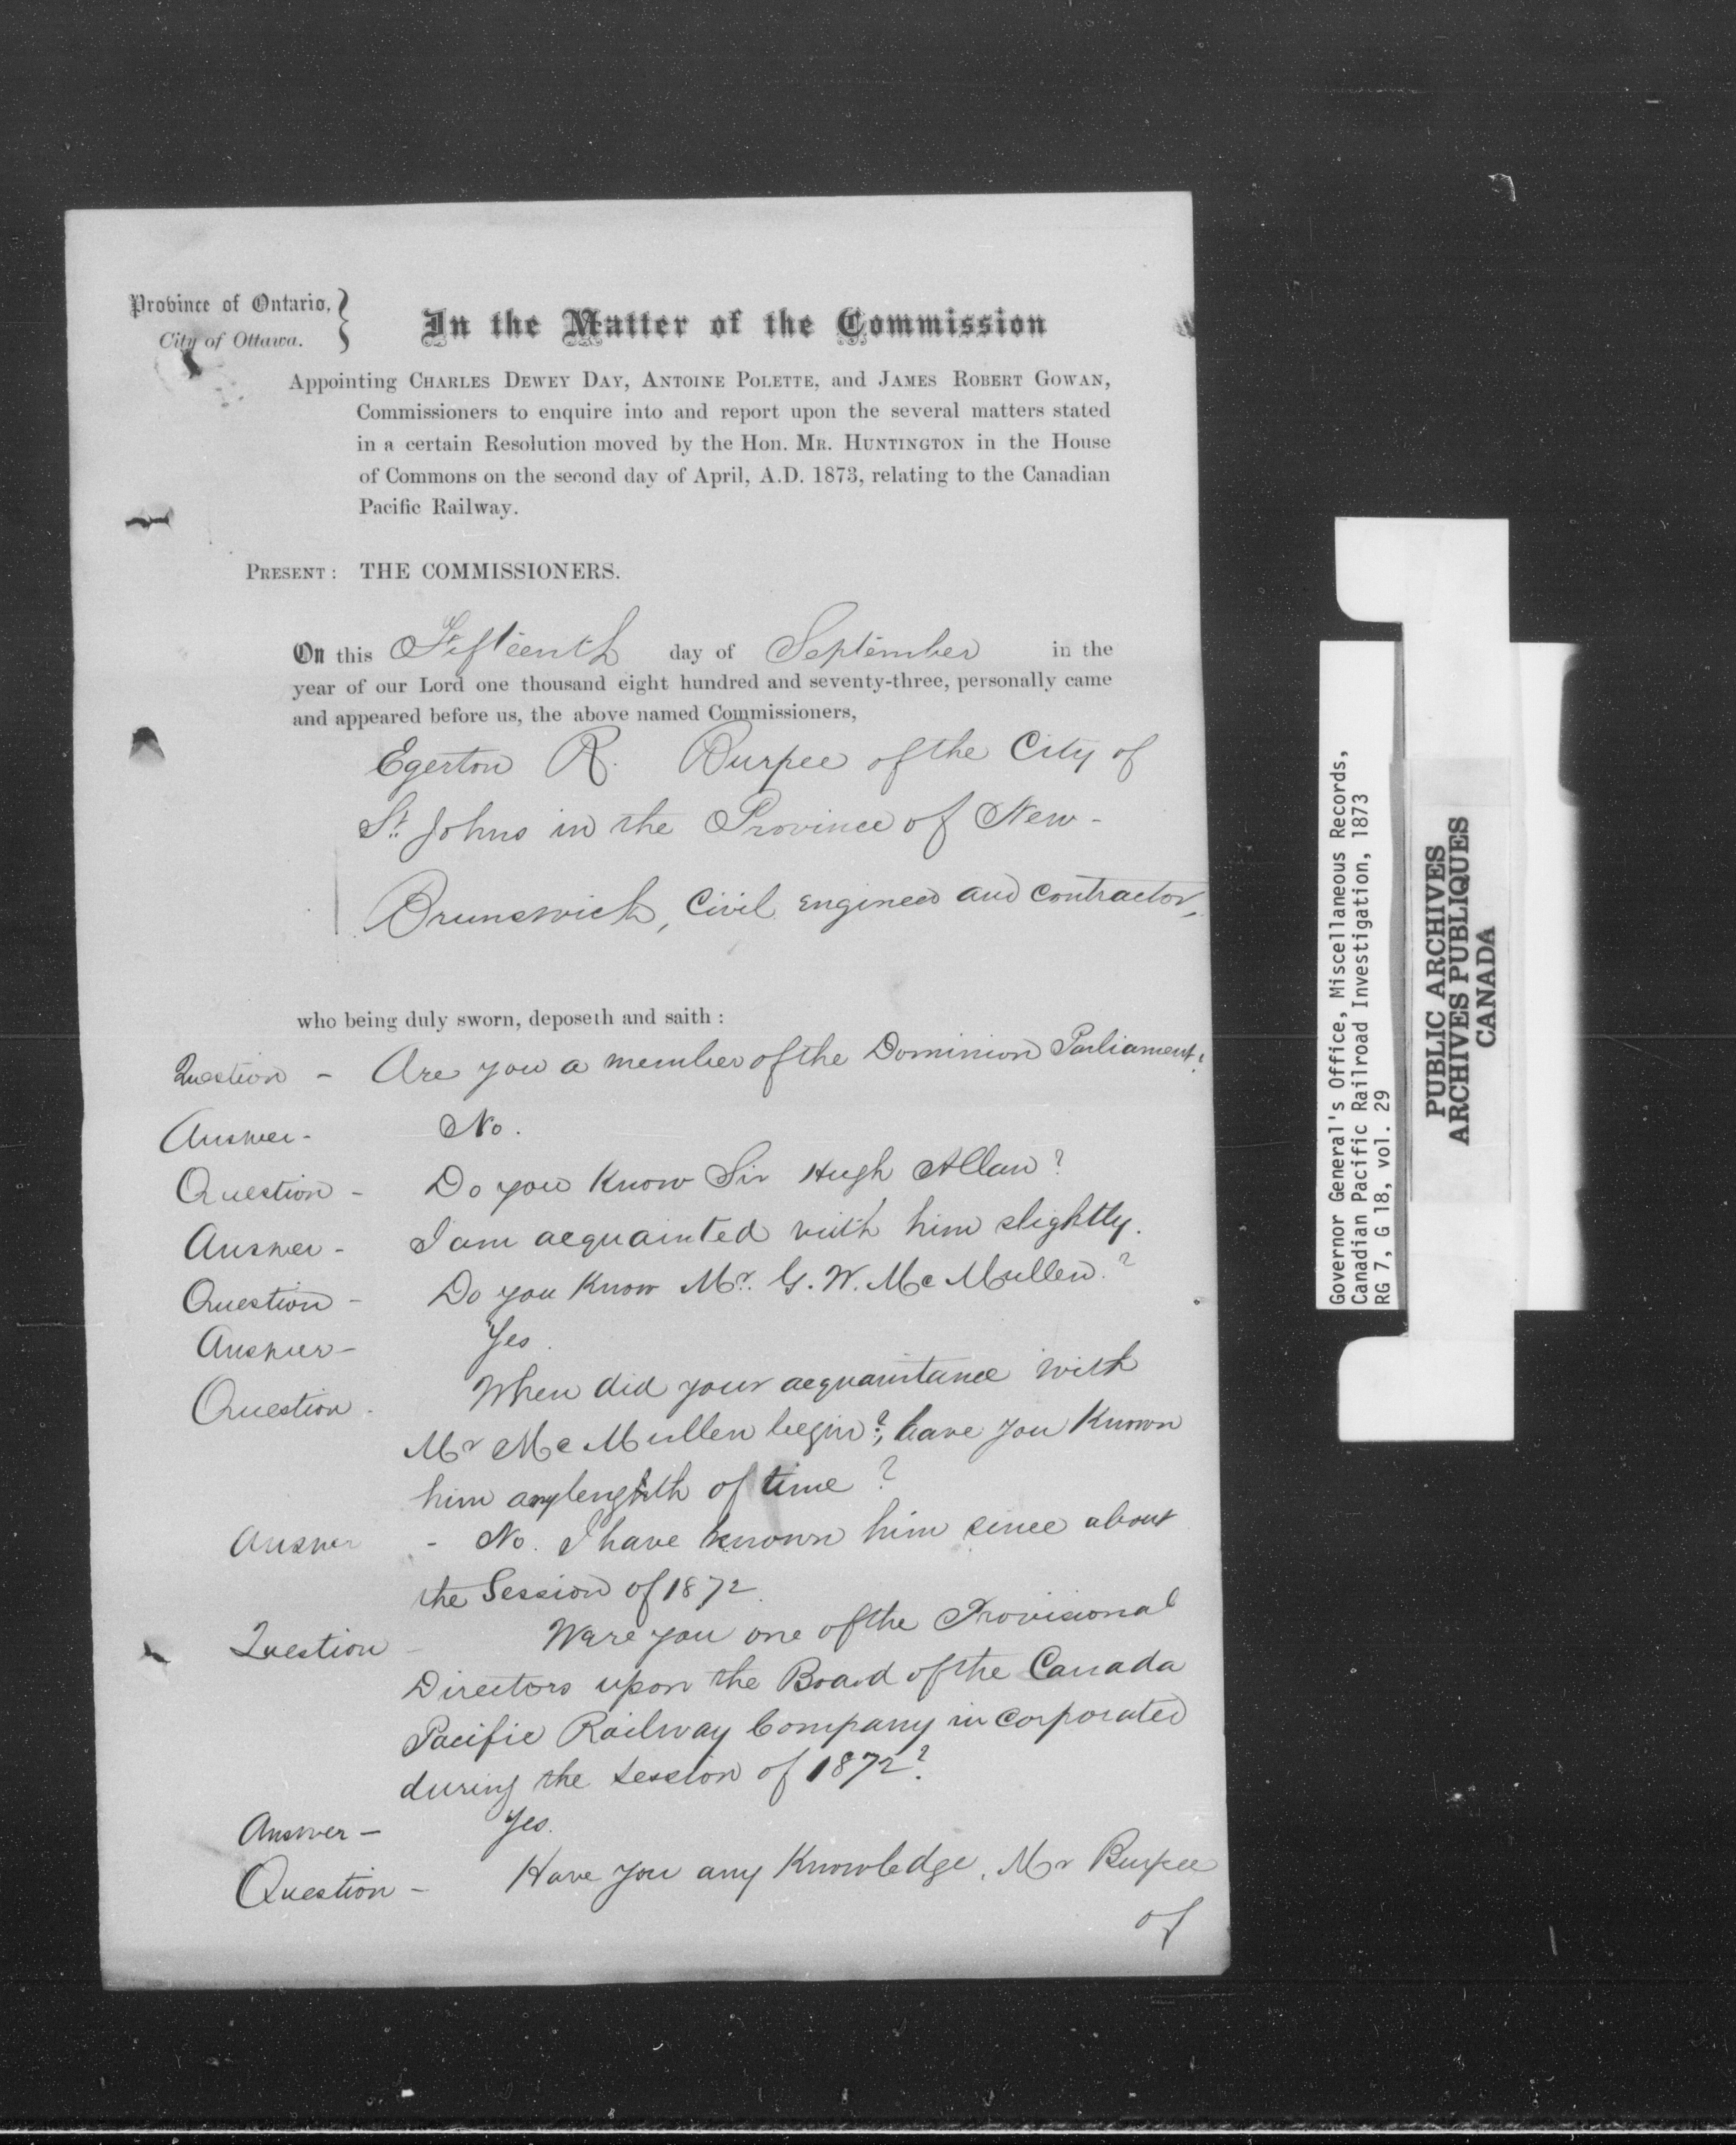 Province of Ontario,
City of Ottawa.
In the Matter of the Commission
Appointing CHARLES DEWEY DAY, ANTOINE POLETTE, and JAMES ROBERT GOWAN,
Commissioners to enquire into and report upon the several matters stated
in a certain Resolution moved by the Hon. MR. HUNTINGTON in the House
of Commons on the second day of April, A.D. 1873, relating to the Canadian
Pacific Railway.
PRESENT: THE COMMISSIONERS.
On this Fifteenth day of September in the
year of our Lord one thousand eight hundred and seventy-three, personally came
and appeared before us, the above named Commissioners,
Egerton R. Burpee of the City of
St. Johns in the Province of New-
Brunswick, Civil Engineer and Contractor,
who being duly sworn, deposeth and saith:
Question - Are you a member of the Dominion Parliament?
Answer - No.
Question - Do you know Sir Hugh Allan?
Answer - I am acquainted with him slightly.
Question - Do you know Mr. G. W. McMullen?
Answer - Yes.
Question - When did your acquaintance with
Mr McMullen begin?, have you known
him any length of time?
Answer - No. I have known him since about
the Session of 1872.
Question - Were you one of the Provisional
Directors upon the Board of the Canada
Pacific Railway Company incorporated
during the session of 1872?
Answer - Yes.
Question - Have you any Knowledge, Mr Burpee
of
Governor General's Office, Miscellaneous Records,
Canadian Pacific Railroad Investigation, 1873
RG 7, G 18, vol. 29
PUBLIC ARCHIVES
ARCHIVES PUBLIQUES
CANADA